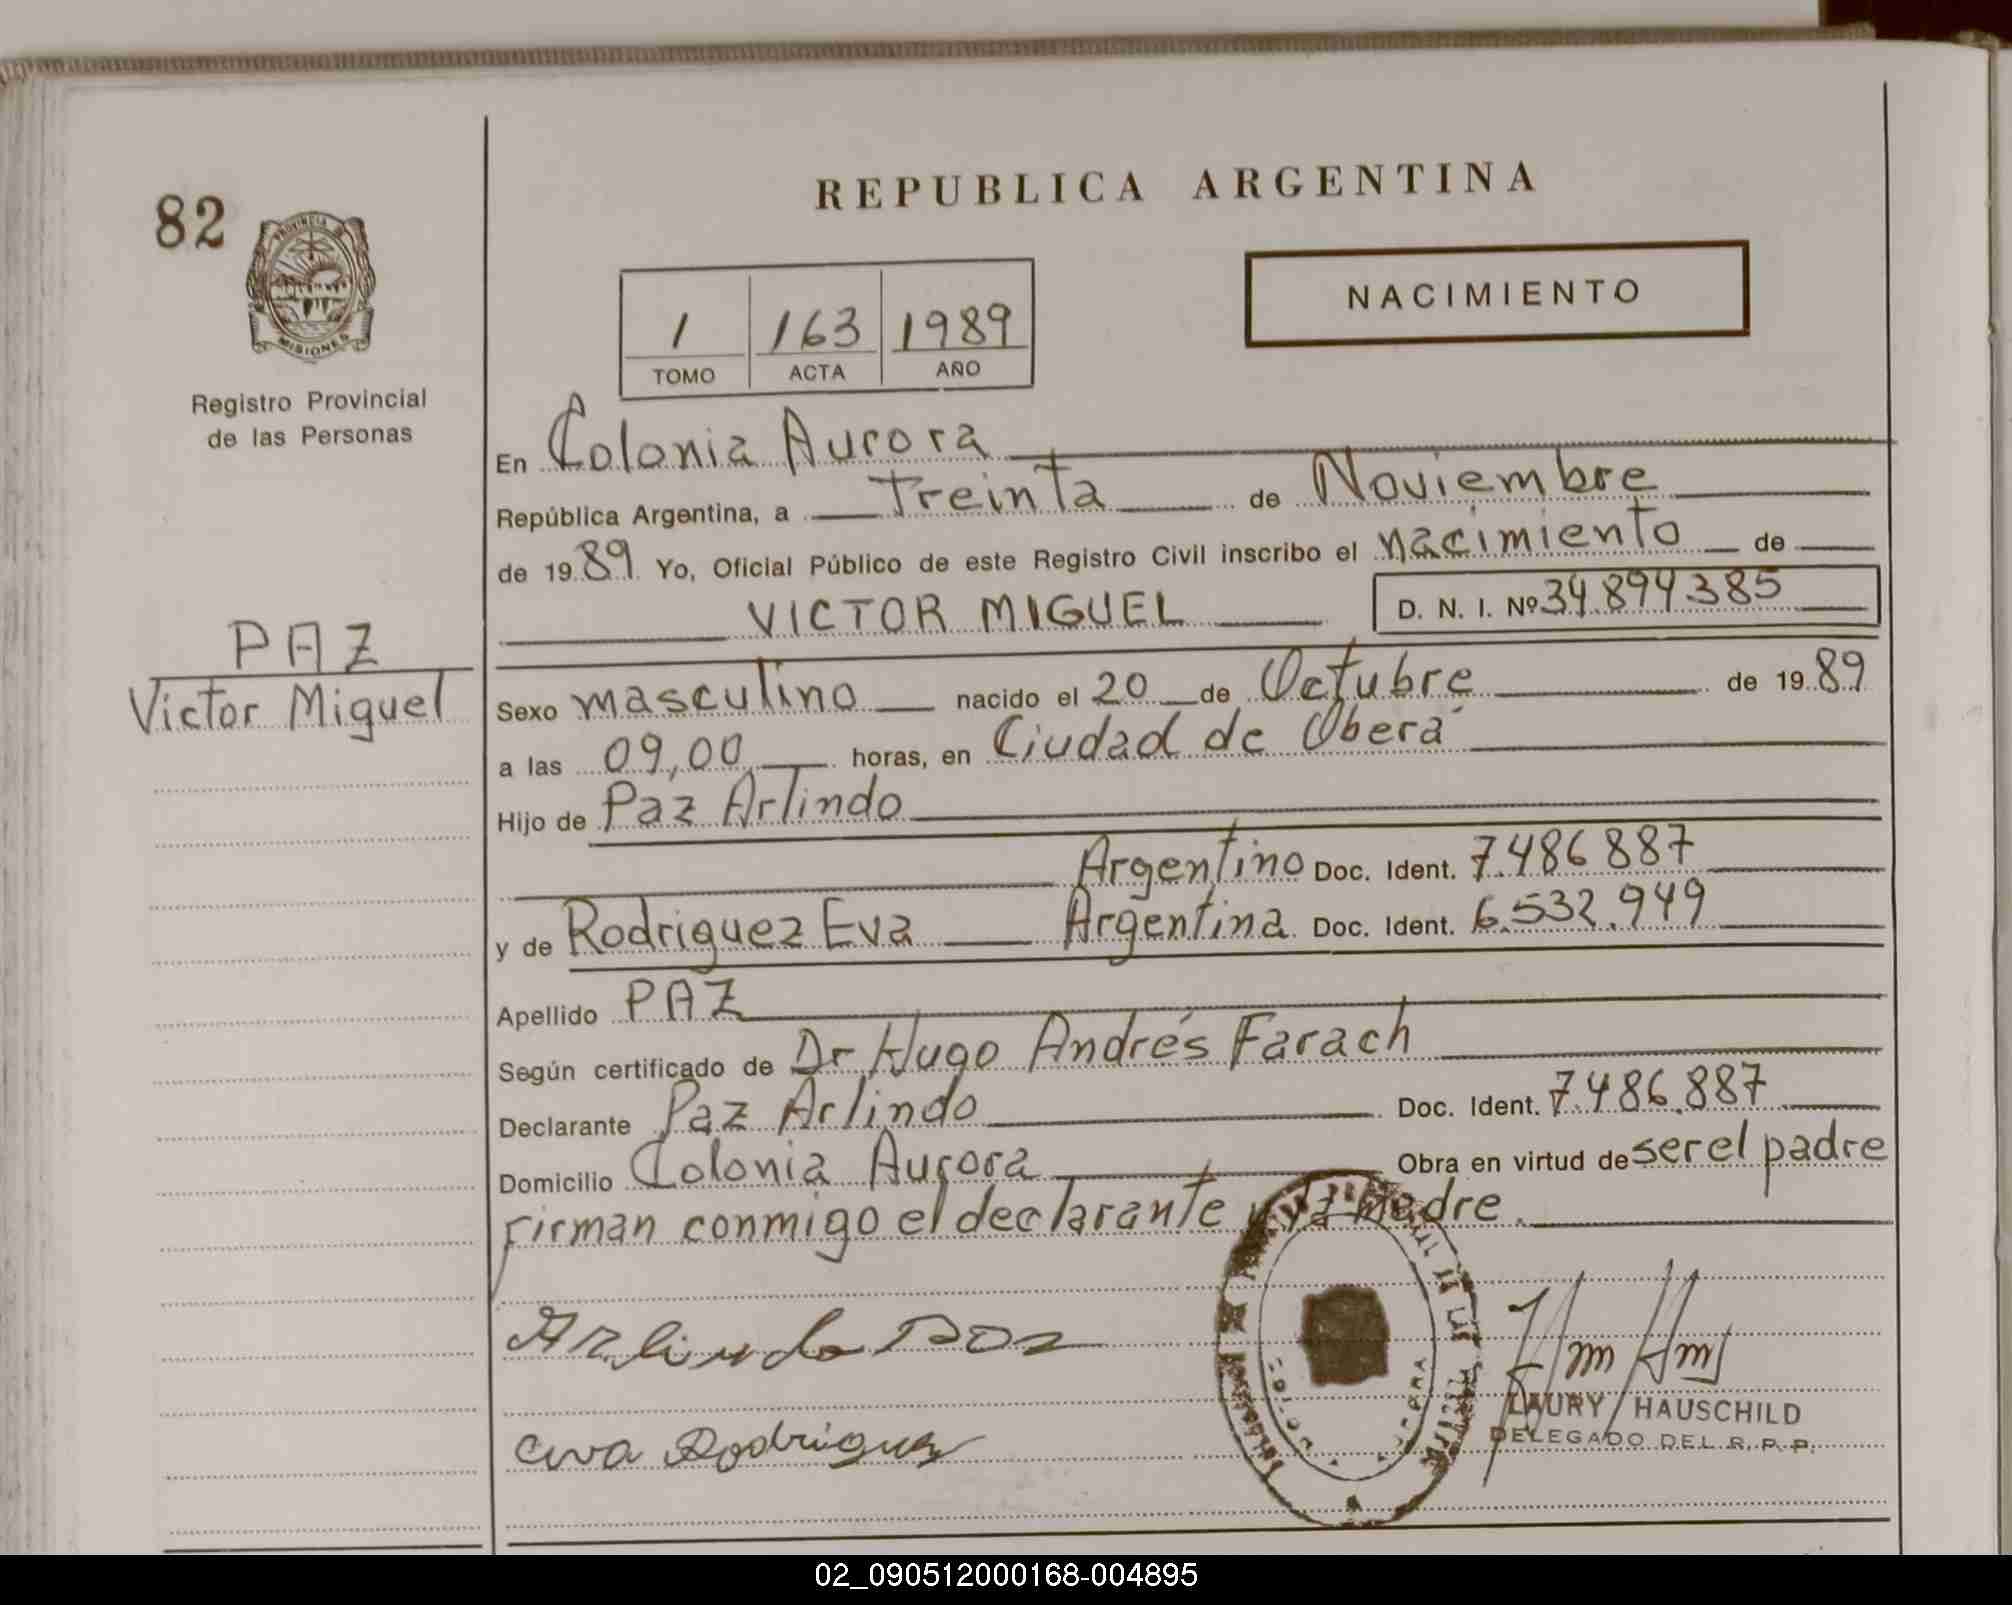 REPUBLICA ARGENTINA
82
PROVINCIA DE
MISIONES
Registro Provincial
de las Personas
NACIMIENTO
1 163 1989
TOMO ACTA AÑO
En Colonia Aurora
República Argentina, a Treinta de Noviembre
de 1989 Yo, Oficial Público de este Registro Civil inscribo el nacimiento de
VICTOR MIGUEL D. N. I. Nº 34.894.385
PAZ
Victor Miguel
Sexo masculino nacido el 20 de Octubre de 1989
a las 09,00 horas, en Ciudad de Oberá
Hijo de Paz Arlindo
Argentino Doc. Ident. 7.486.887
y de Rodriguez Eva Argentina Doc. Ident. 6.532.949
Apellido PAZ
Según certificado de Dr Hugo Andrés Farach
Declarante Paz Arlindo Doc. Ident. 7.486.887
Domicilio Colonia Aurora Obra en virtud de ser el padre
Firman conmigo el declarante y la madre.
Arlindo Paz
Eva Rodriguez
LAURY HAUSCHILD
DELEGADO DEL R. P. P.
02_090512000168-004895